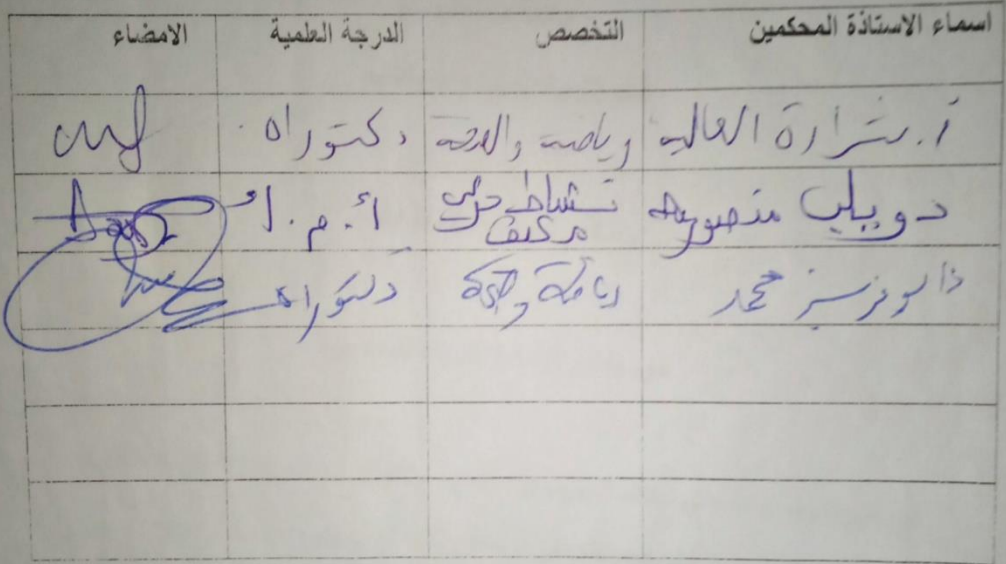 اسماء الاستاذة المحكمين التخصص الدرجة العلمية الامضاء
أ. شرارة العالية رياضة والصحة دكتوراه
دويلي منصورية نشاط حركي مكيف أ. م. أ
محمد رياضة وصحة دكتوراه